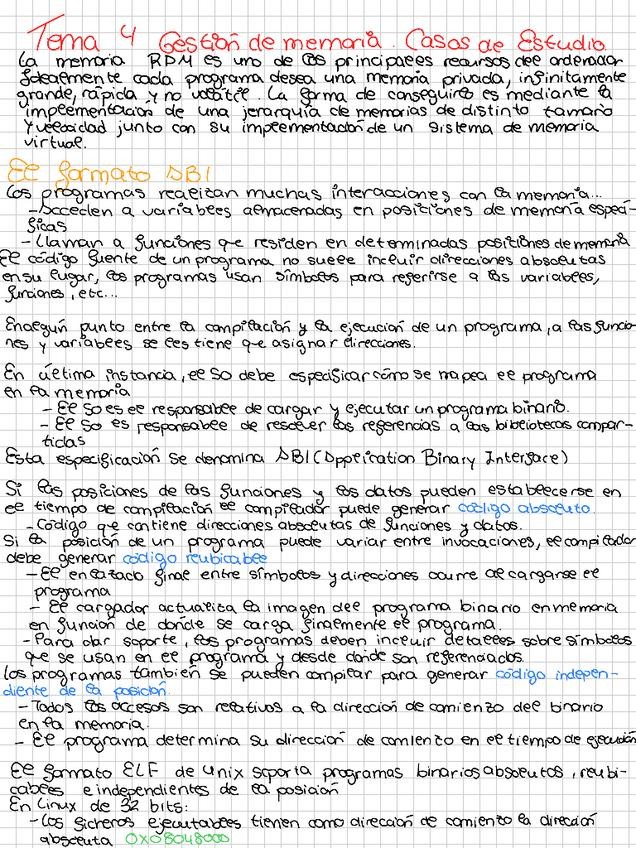 Tema 4 Gestión de memoria. Casos de Estudio.
La memoria RAM es uno de los principales recursos del ordenador
Idealmente cada programa desea una memoria privada, infinitamente
grande, rápida y no volátil. La forma de conseguirlo es mediante la
implementación de una jerarquía de memorias de distinto tamaño
y velocidad junto con su implementación de un sistema de memoria
virtual.
El formato ABI
Los programas realizan muchas interacciones con la memoria...
- Acceden a variables almacenadas en posiciones de memoria especí-
ficas
- Llaman a funciones que residen en determinadas posiciones de memoria
El código fuente de un programa no suele incluir direcciones absolutas
en su lugar, los programas usan símbolos para referirse a las variables,
funciones, etc...
En algún punto entre la compilación y la ejecución de un programa, a las funcio-
nes y variables se les tiene que asignar direcciones.
En última instancia, el SO debe especificar cómo se mapea el programa
en la memoria
- El SO es el responsable de cargar y ejecutar un programa binario.
- El SO es responsable de resolver las referencias a las bibliotecas compar-
tidas
Esta especificación se denomina ABI (Application Binary Interface)
Si las posiciones de las funciones y los datos pueden establecerse en
el tiempo de compilación el compilador puede generar código absoluto.
- Código que contiene direcciones absolutas de funciones y datos.
Si la posición de un programa puede variar entre invocaciones, el compilador
debe generar código reubicable
- El enlazado final entre símbolos y direcciones ocurre al cargarse el
programa
- El cargador actualiza la imagen del programa binario en memoria
en función de donde se carga finalmente el programa.
- Para dar soporte, los programas deben incluir detalles sobre símbolos
que se usan en el programa y desde dónde son referenciados.
Los programas también se pueden compilar para generar código indepen-
diente de la posición.
- Todos los accesos son relativos a la dirección de comienzo del binario
en la memoria.
- El programa determina su dirección de comienzo en el tiempo de ejecución
El formato ELF de Unix soporta programas binarios absolutos, reubi-
cables e independientes de la posición
En Linux de 32 bits:
- Los ficheros ejecutables tienen como dirección de comienzo la dirección
absoluta 0x08048000